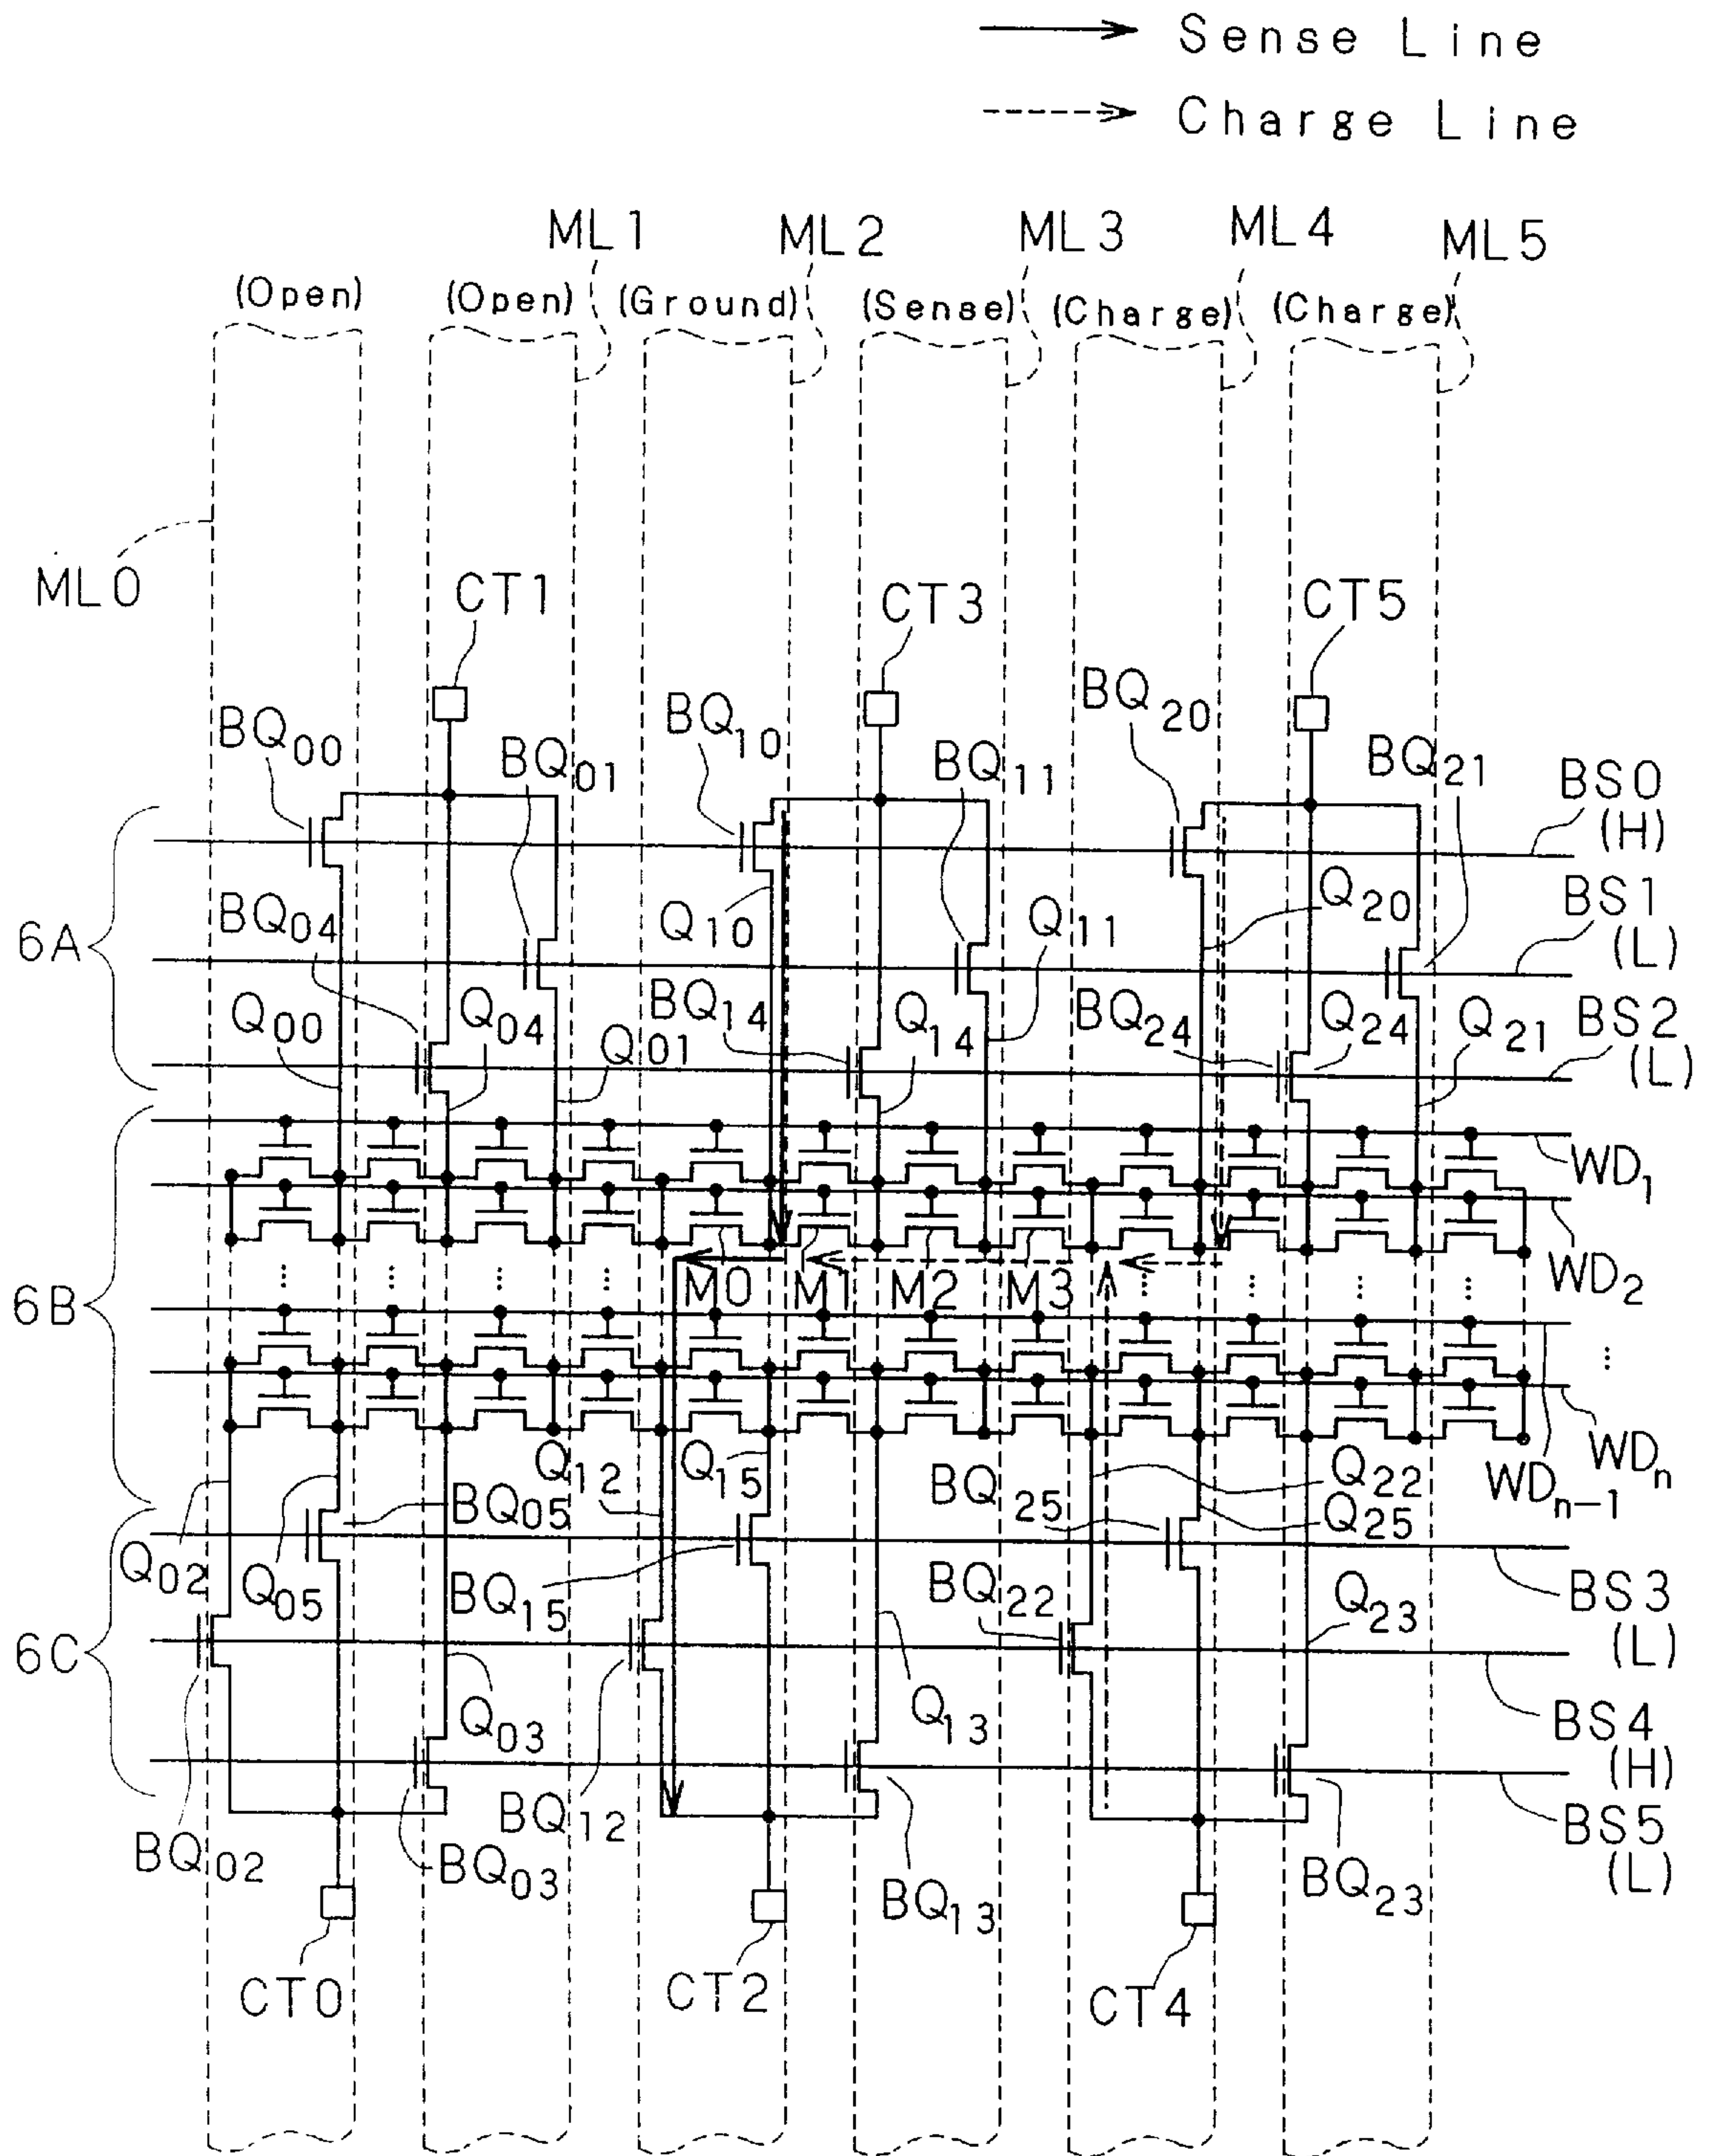 Sense Line
Charge Line
ML1
ML2
ML3
ML4
ML5
(Open)
(Open)
(Ground)
(Sense)
(Charge)
(Charge)
ML0
CT1
CT3
CT5
BQ00
BQ01
BQ10
BQ11
BQ20
BQ21
BS0
(H)
6A
BQ04
Q10
Q11
Q20
BS1
(L)
Q00
Q04
Q01
BQ14
Q14
BQ24
Q24
Q21
BS2
(L)
WD1
6B
M0
M1
M2
M3
WD2
Q12
Q15
BQ25
Q22
Q25
WDn
WDn-1
Q02
Q05
BQ05
BQ15
BQ22
Q23
BS3
(L)
6C
Q03
Q13
BS4
(H)
BQ02
BQ03
BQ12
BQ13
BQ23
BS5
(L)
CT0
CT2
CT4